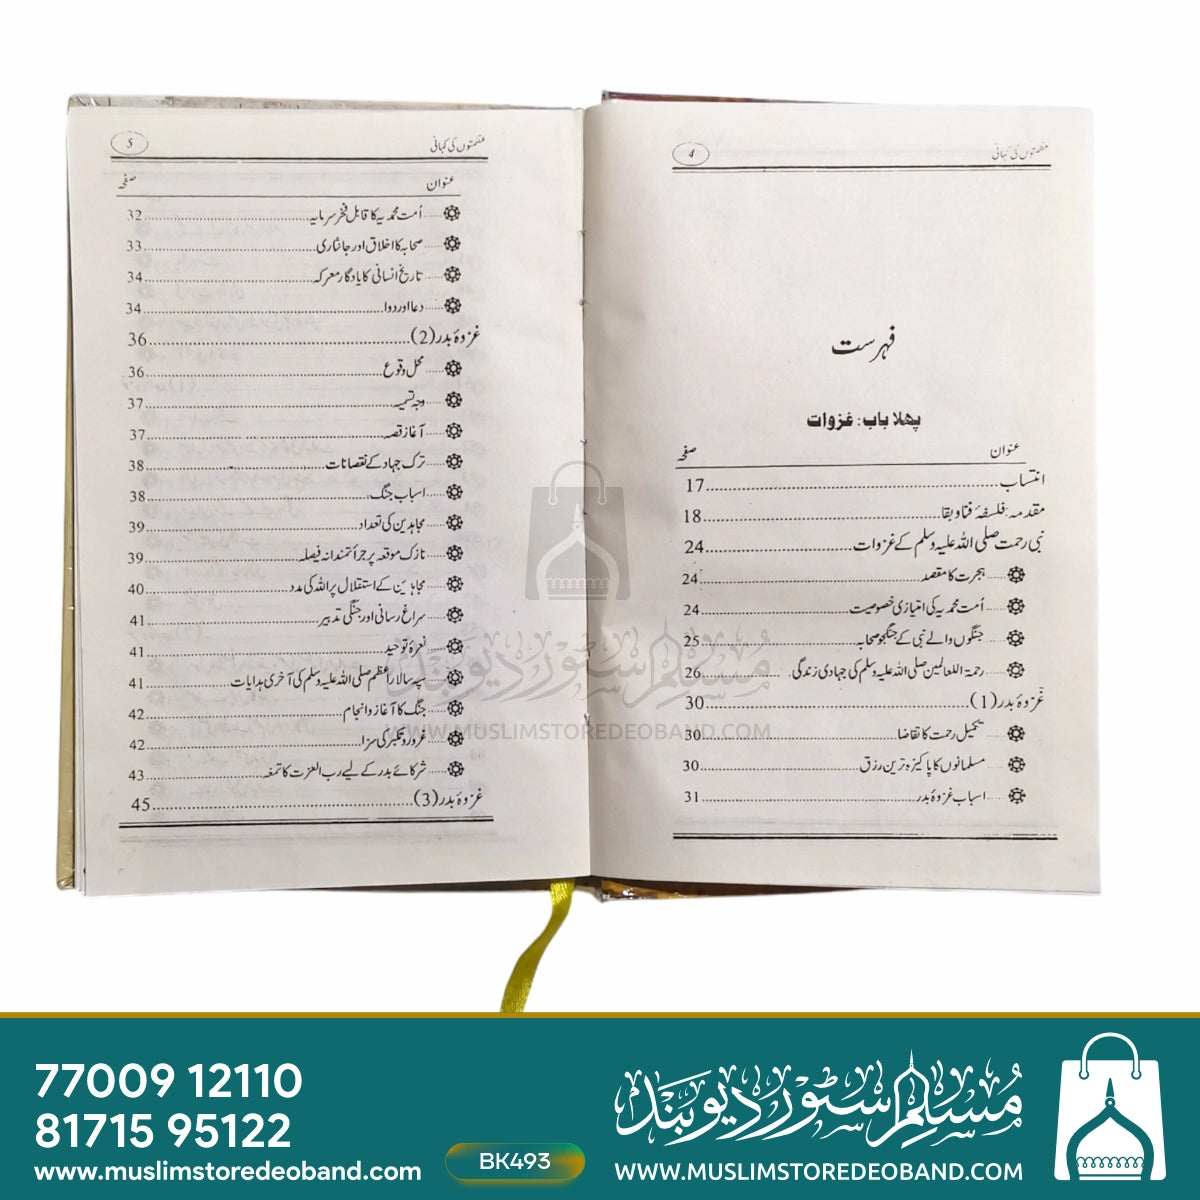 عظمتوں کی کہانی 4
فہرست
پہلا باب: غزوات
عنوان صفحہ
انتساب 17
مقدمہ: فلسفۂ فنا و بقا 18
نبی رحمت صلی اللہ علیہ وسلم کے غزوات 24
ہجرت کا مقصد 24
اُمت محمدیہ کی امتیازی خصوصیت 24
جنگوں والے نبی کے جنگجو صحابہ 25
رحمۃ اللعالمین صلی اللہ علیہ وسلم کی جہادی زندگی 26
غزوۂ بدر (1) 30
تکمیل رحمت کا تقاضا 30
مسلمانوں کا پاکیزہ ترین رزق 30
اسباب غزوۂ بدر 31
عظمتوں کی کہانی 5
عنوان صفحہ
اُمت محمدیہ کا قابل فخر سرمایہ 32
صحابہ کا اخلاق اور جانثاری 33
تاریخ انسانی کا یادگار معرکہ 34
دعا اور دوا 34
غزوۂ بدر (2) 36
محل وقوع 36
وجہ تسمیہ 37
آغاز قصہ 37
ترک جہاد کے نقصانات 38
اسباب جنگ 38
مجاہدین کی تعداد 39
نازک موقعہ پر جرأتمندانہ فیصلہ 39
مجاہدین کے استقلال پر اللہ کی مدد 40
سراغ رسانی اور جنگی تدبیر 41
نعرۂ توحید 41
سپہ سالار اعظم صلی اللہ علیہ وسلم کی آخری ہدایات 41
جنگ کا آغاز و انجام 42
غرور و تکبر کی سزا 42
شرکائے بدر کے لیے رب العزت کا تمغہ 43
غزوۂ بدر (3) 45
مسلم سٹور دیوبند
WWW.MUSLIMSTOREDEOBAND.COM
77009 12110
81715 95122
www.muslimstoredeoband.com
BK493
مسلم سٹور دیوبند
WWW.MUSLIMSTOREDEOBAND.COM